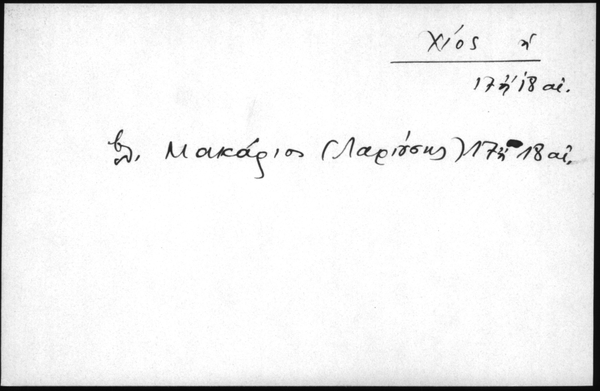 Χίος ἡ
17 ἢ 18 αἰ.
βλ. Μακάριος (Λαρίσης) 17 ἢ 18 αἰ.